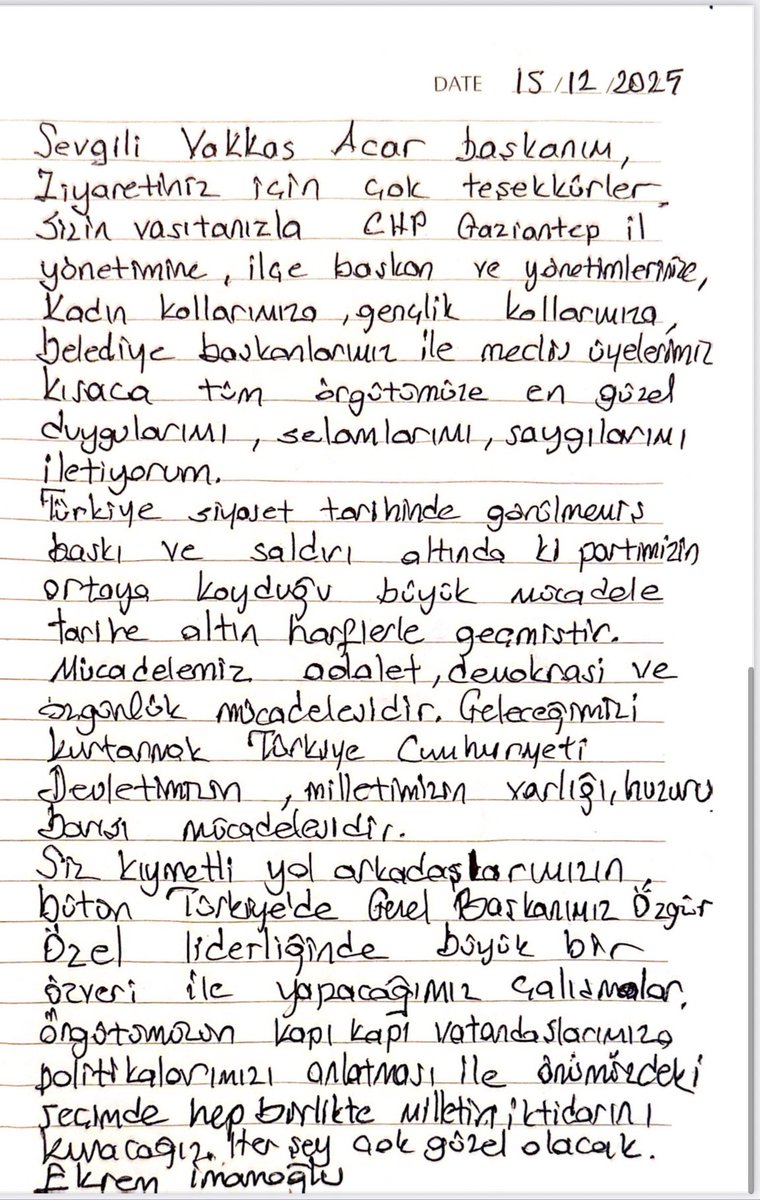 DATE 15/12/2025
Sevgili Vakkas Acar başkanım,
Ziyaretiniz için çok teşekkürler.
Sizin vasıtanızla CHP Gaziantep il
yönetimine, ilçe başkan ve yönetimlerimize,
Kadın kollarımıza, gençlik kollarımıza,
belediye başkanlarımız ile meclis üyelerimiz
kısaca tüm örgütümüze en güzel
duygularımı, selamlarımı, saygılarımı
iletiyorum.
Türkiye siyaset tarihinde görülmemiş
baskı ve saldırı altında ki partimizin
ortaya koyduğu büyük mücadele
tarihe altın harflerle geçmiştir.
Mücadelemiz adalet, demokrasi ve
özgürlük mücadelesidir. Geleceğimizi
kurtarmak Türkiye Cumhuriyeti
Devletimizin, milletimizin varlığı, huzuru
barışı mücadelesidir.
Siz kıymetli yol arkadaşlarımızın,
bütün Türkiye'de Genel Başkanımız Özgür
Özel liderliğinde büyük bir
özveri ile yapacağımız çalışmalar,
örgütümüzün kapı kapı vatandaşlarımıza
politikalarımızı anlatması ile önümüzdeki
seçimde hep birlikte milletin iktidarını
kuracağız. Her şey çok güzel olacak.
Ekrem İmamoğlu